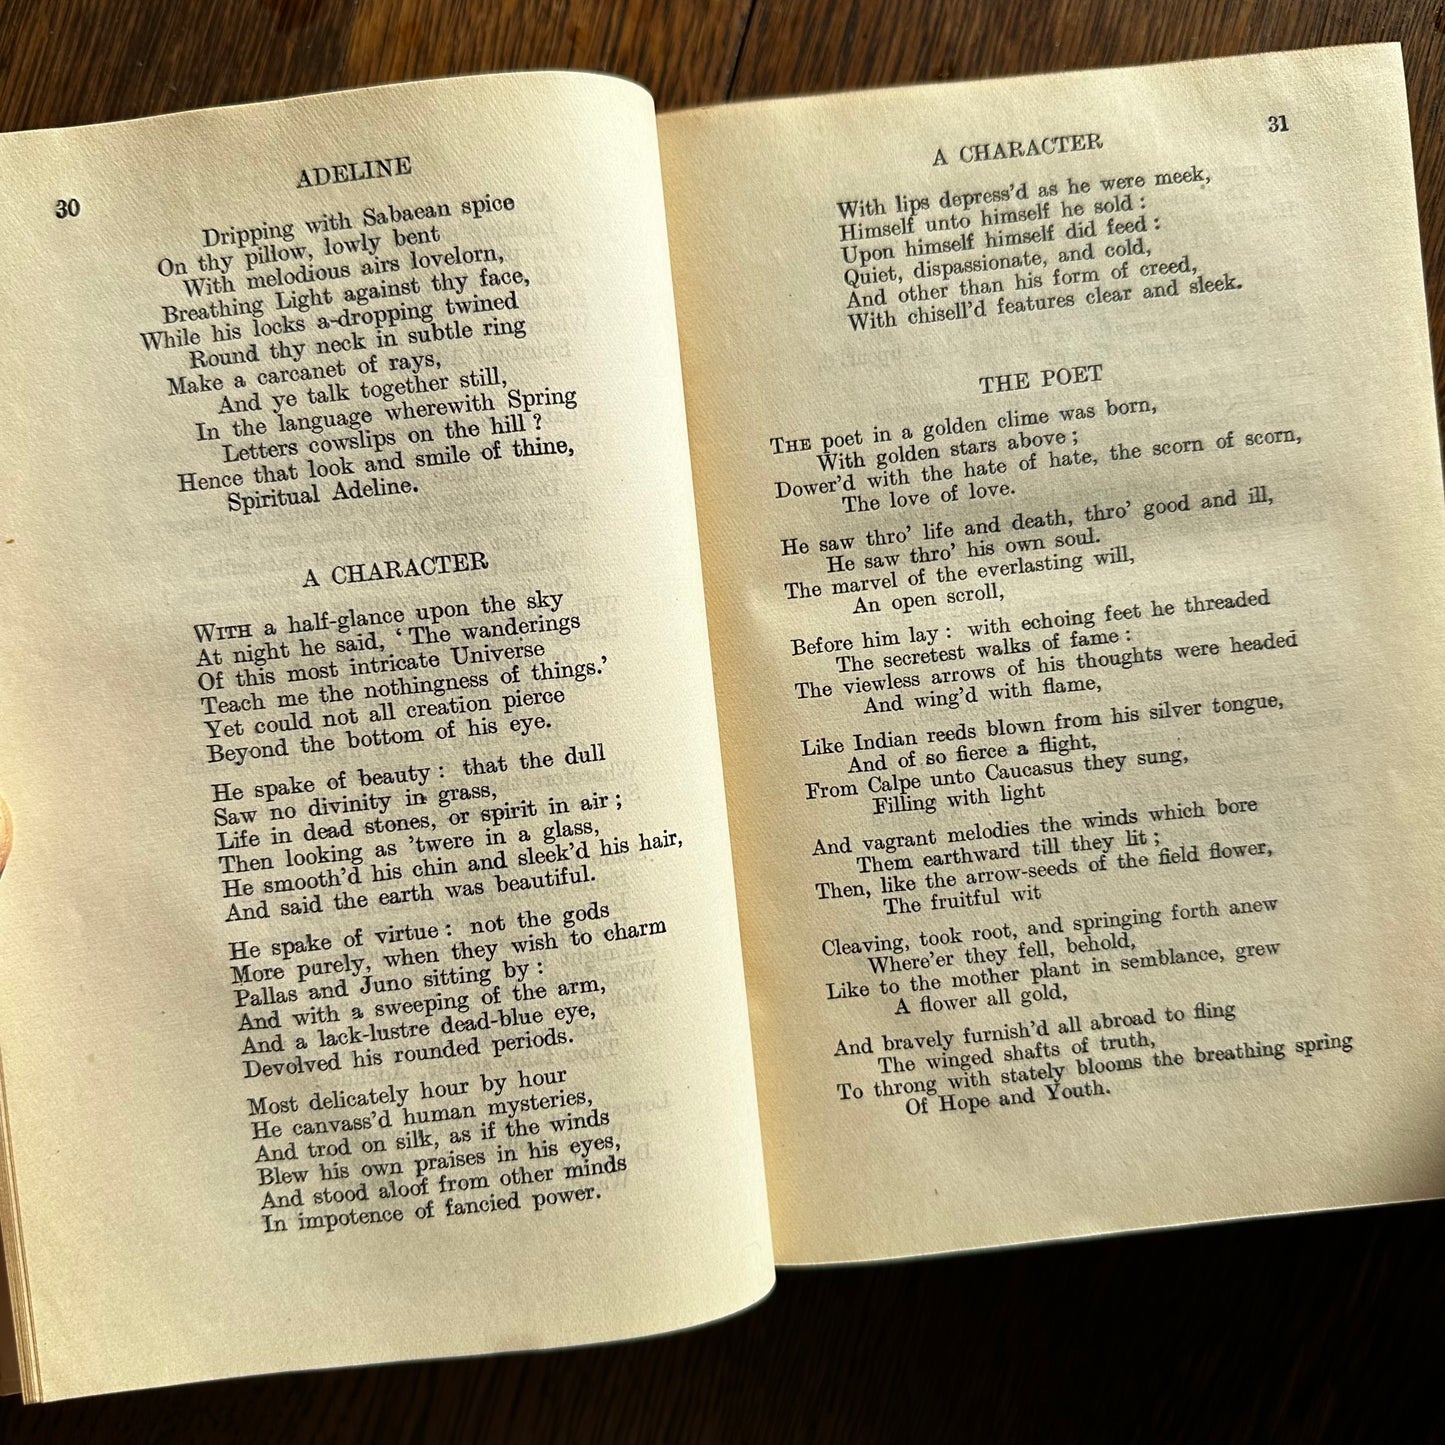 30
ADELINE
Dripping with Sabaean spice
On thy pillow, lowly bent
With melodious airs lovelorn,
Breathing Light against thy face,
While his locks a-dropping twined
Round thy neck in subtle ring
Make a carcanet of rays,
And ye talk together still,
In the language wherewith Spring
Letters cowslips on the hill ?
Hence that look and smile of thine,
Spiritual Adeline.
A CHARACTER
WITH a half-glance upon the sky
At night he said, ‘ The wanderings
Of this most intricate Universe
Teach me the nothingness of things.’
Yet could not all creation pierce
Beyond the bottom of his eye.
He spake of beauty : that the dull
Saw no divinity in grass,
Life in dead stones, or spirit in air ;
Then looking as ’twere in a glass,
He smooth’d his chin and sleek’d his hair,
And said the earth was beautiful.
He spake of virtue : not the gods
More purely, when they wish to charm
Pallas and Juno sitting by :
And with a sweeping of the arm,
And a lack-lustre dead-blue eye,
Devolved his rounded periods.
Most delicately hour by hour
He canvass’d human mysteries,
And trod on silk, as if the winds
Blew his own praises in his eyes,
And stood aloof from other minds
In impotence of fancied power.
A CHARACTER
31
With lips depress’d as he were meek,
Himself unto himself he sold :
Upon himself himself did feed :
Quiet, dispassionate, and cold,
And other than his form of creed,
With chisell’d features clear and sleek.
THE POET
THE poet in a golden clime was born,
With golden stars above ;
Dower’d with the hate of hate, the scorn of scorn,
The love of love.
He saw thro’ life and death, thro’ good and ill,
He saw thro’ his own soul.
The marvel of the everlasting will,
An open scroll,
Before him lay : with echoing feet he threaded
The secretest walks of fame :
The viewless arrows of his thoughts were headed
And wing’d with flame,
Like Indian reeds blown from his silver tongue,
And of so fierce a flight,
From Calpe unto Caucasus they sung,
Filling with light
And vagrant melodies the winds which bore
Them earthward till they lit ;
Then, like the arrow-seeds of the field flower,
The fruitful wit
Cleaving, took root, and springing forth anew
Where’er they fell, behold,
Like to the mother plant in semblance, grew
A flower all gold,
And bravely furnish’d all abroad to fling
The winged shafts of truth,
To throng with stately blooms the breathing spring
Of Hope and Youth.